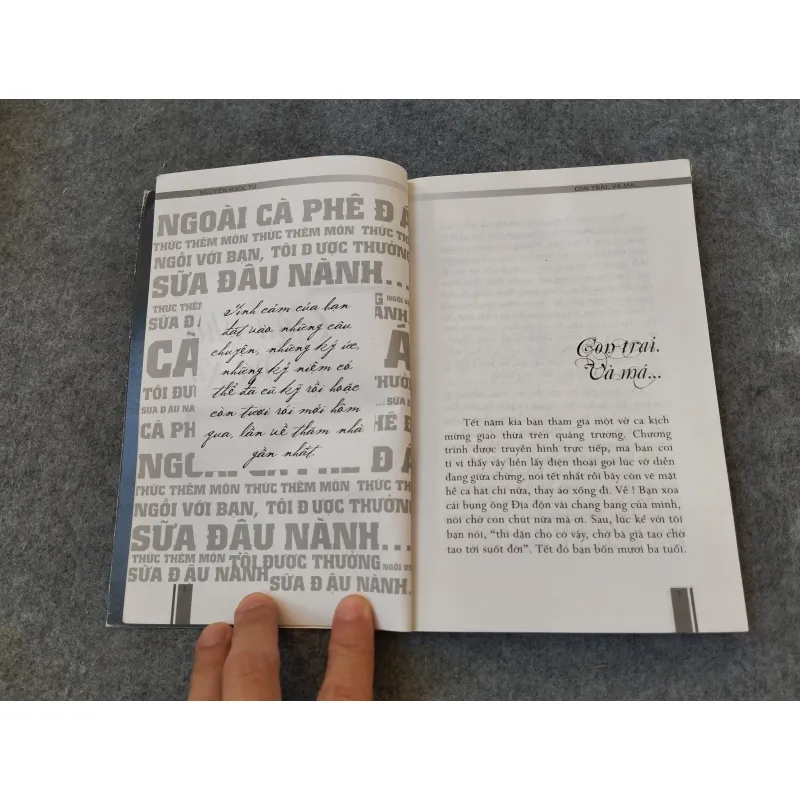 NGUYỄN NGỌC TƯ
NGOÀI CÀ PHÊ Đ Á
THỨC THÊM MÓN THỨC THÊM MÓN THỨC TH
NGỒI VỚI BẠN, TÔI Đ ƯỢC THƯỞNG
SỮA ĐẬU NÀNH...
THỨC THÊM
NGỒI VỚ
SỮA Đ
ÀNH.
Tình cảm của bạn
đặt vào những câu
chuyện, những ký ức,
những kỷ niệm có
thể đã cũ kỹ rồi hoặc
còn tươi rói mới hôm
qua, lần về thăm nhà
gần nhất.
CÀ
Á
TÔI ĐƯỢ
THƯỞNG
SỮA Đ ẬU NÀNH
CÀ PHÊ
Ê Đ Á
NGOÀI CÀ PHÊ Đ Á
THỨC THÊM MÓN THỨC THÊM MÓN THỨC TH
NGỒI VỚI BẠN, TÔI Đ ƯỢC THƯỞNG
SỮA ĐẬU NÀNH...
THỨC THÊM MÓN
TÔI ĐƯỢC THƯỞNG
NGỒI VỚ
SỮA Đ ẬU NÀNH
SỮA Đ ẬU NÀNH.
CON TRAI. VÀ MÁ...
Con trai.
Và má...
Tết năm kia bạn tham gia một vở ca kịch
mừng giao thừa trên quảng trường. Chương
trình được truyền hình trực tiếp, má bạn coi
ti vi thấy vậy liền lấy điện thoại gọi lúc vở diễn
đang giữa chừng, nói tết nhất rồi bây còn ve mặt
hề ca hát chi nữa, thay áo xống đi. Về ! Bạn xoa
cái bụng ông Địa độn vải chang bang của mình,
nói chờ con chút nữa má ơi. Sau, lúc kể với tôi
bạn nói, “thì dặn cho có vậy, chớ bà già tao chờ
tao tới suốt đời”. Tết đó bạn bốn mươi ba tuổi.
7